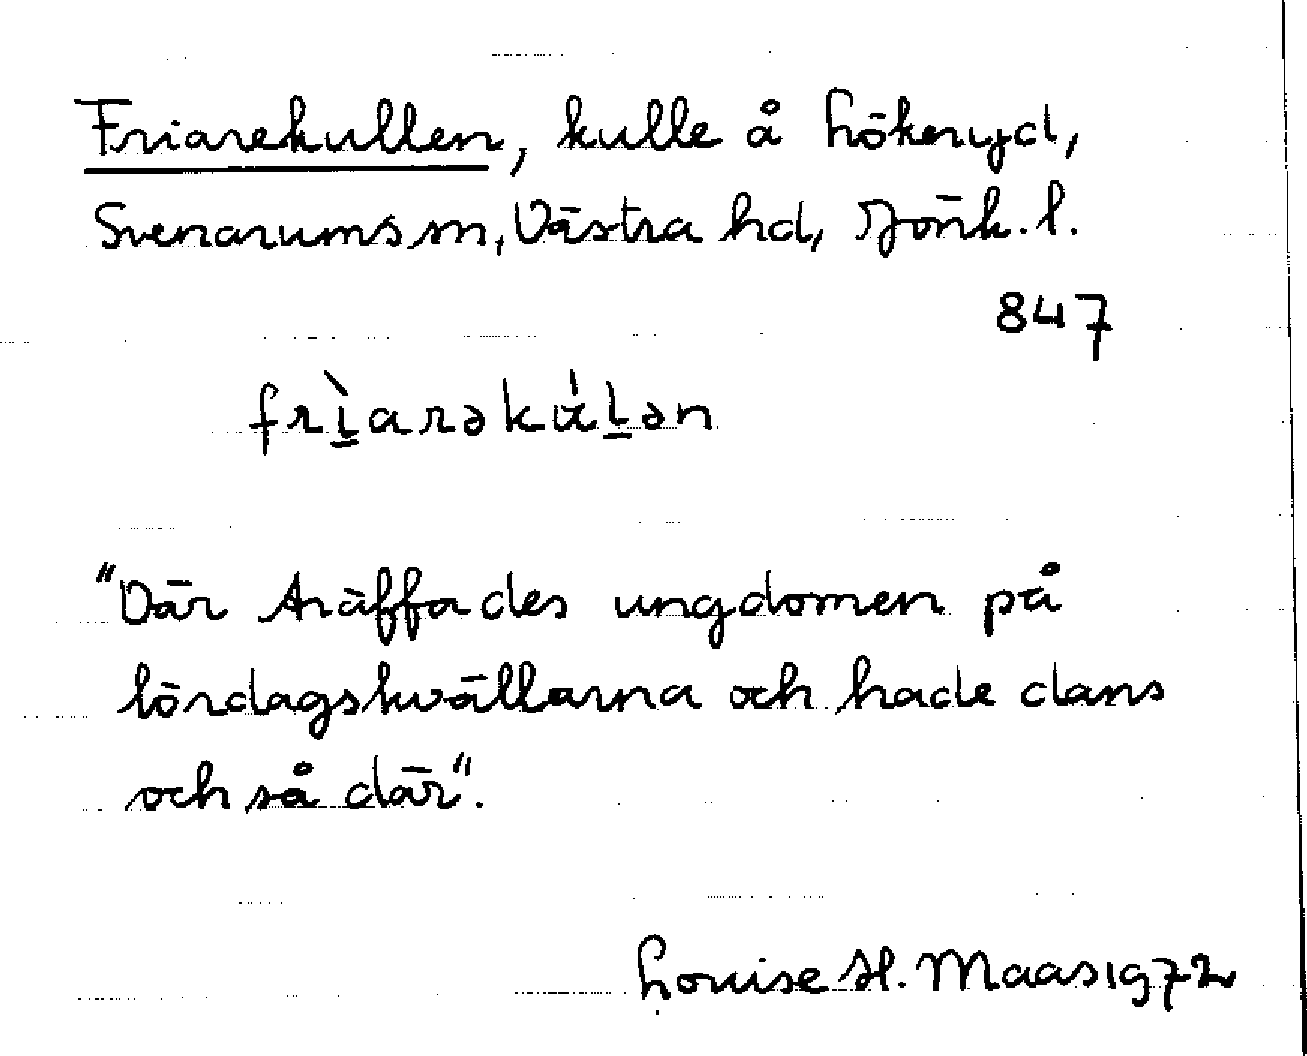 Friarekullen, kulle å Lökeryd,
Svenarums sn, Västra hd, Jönk. l.
847
frìarəkúlən
"Där träffades ungdomen på
lördagskvällarna och hade dans
och så där".
Louise H. Maas 1972